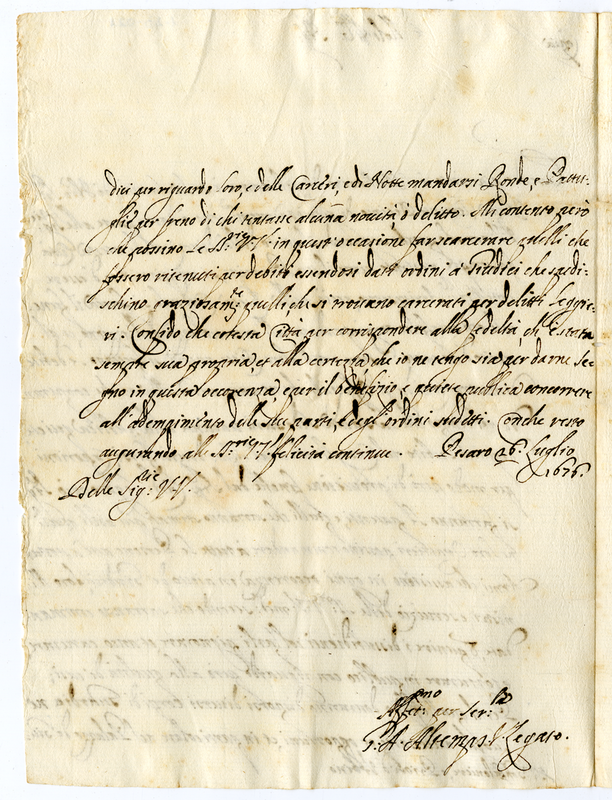 dici per riguardo loro, e delle Carceri, e di Notte mandarsi Ronde, e Pattu-
glie per freno di chi tentasse alcuna novità, ò delitto. Mi contento però
che possino Le SS.rie VV. in quest'occasione far scarcerare quelli che
fossero ritenuti per debiti essendosi dati ordini à Giudici che spedi-
schino graziosam.te quelli, che si trovano carcerati per delitti leggie-
ri. Confido che cotesta Città per corrispondere alla fedeltà, ch'è stata
sempre sua propria, et alla certezza che io ne tengo sia per darne Se-
gno in questa occorenza, e per il benefizio, e quiete publica concorrere
all'adempimento delle Sue parti, e degl'ordini sudetti. Con che resto
augurando alle SS.rie VV. felicità continue. Pesaro 26. Luglio
1676.
Delle Sig.rie VV.
Aff.mo per Ser.la
G. A. Altemps V. Legato.